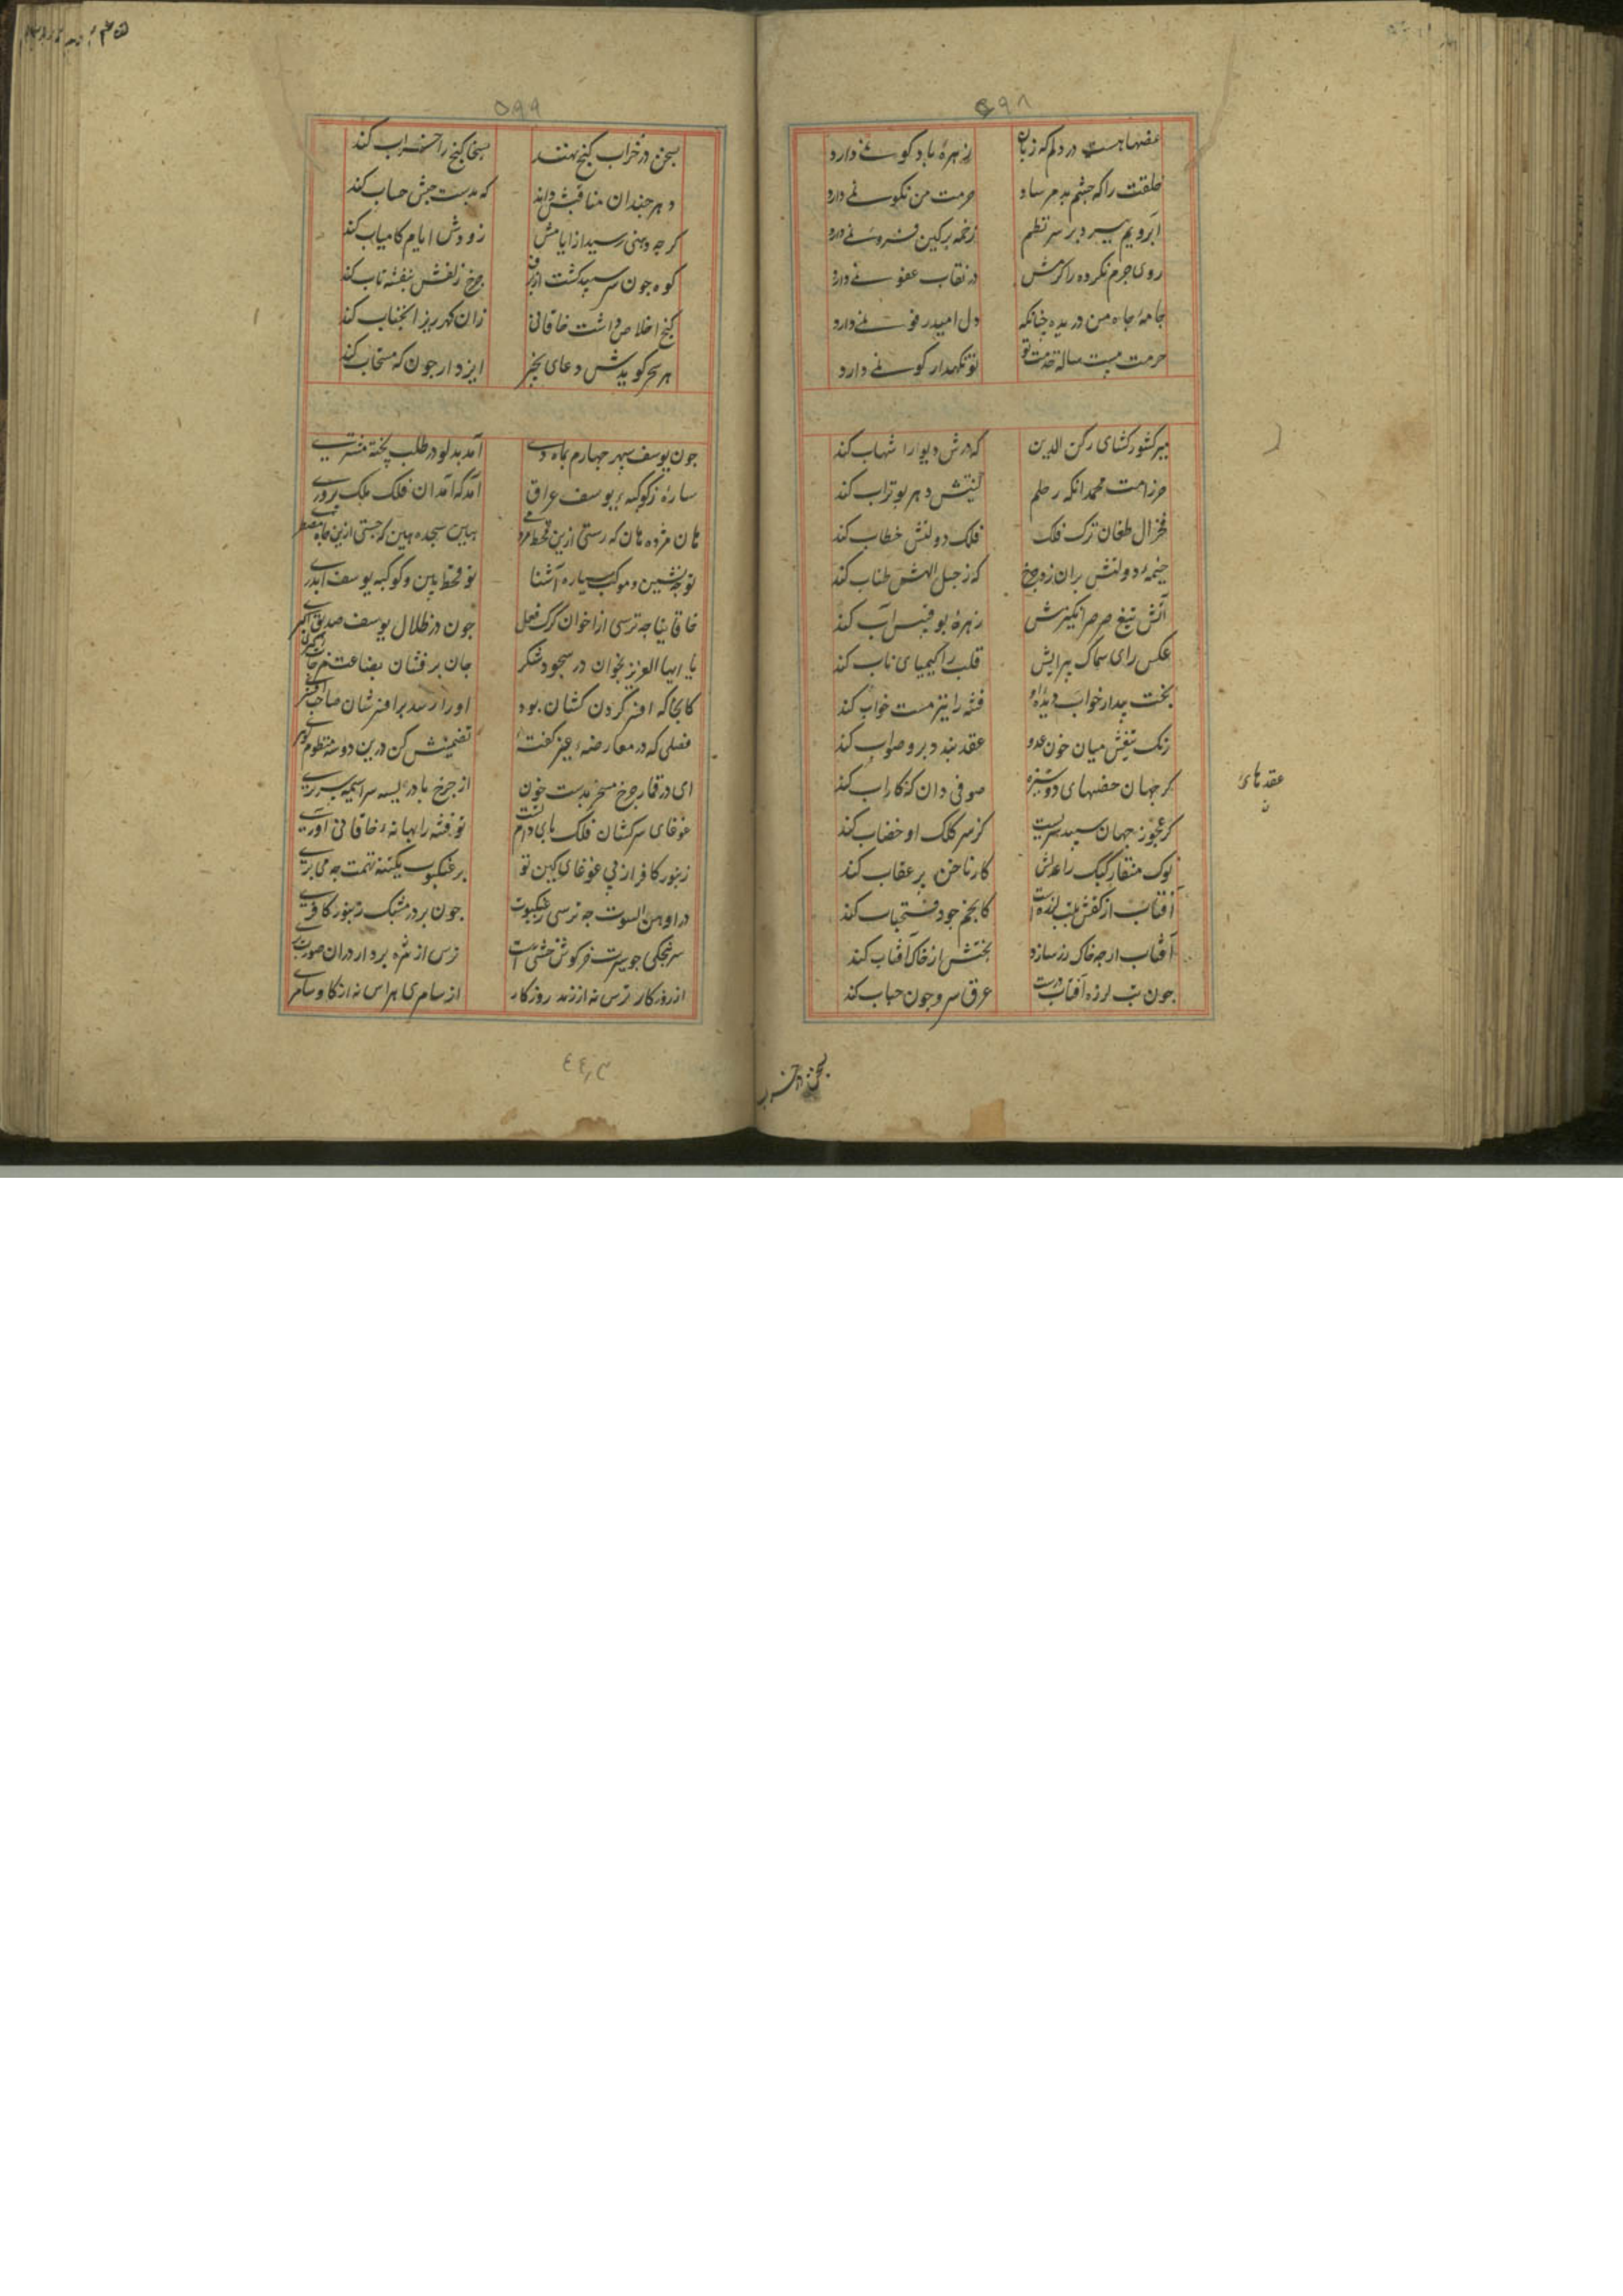 ۵۹۸
غصها هست در دلم که زبان
زهرهٔ باد کو نمی دارد
خلقت را که چشم بد مرساد
حرمت من نکو نمی دارد
آبرویم بسرد بر سر نظم
روی جرم نکرده را کرمش
در نقاب عفو نمی دارد
جامهٔ جاه من دریده چنانکه
دل امید رفو نمی دارد
حرمت بیست ساله خدمت تو
تو نکهدار کو نمی دارد
میر کشور کشای رکن الدین
که درش دیو را شهاب کند
حرز امت محمد انکه ز حلم
کنیتش دهر بوتراب کند
فخر ال طغان ترک فلک
فلک دولتش خطاب کند
خیمهٔ دولتش بران زد چرخ
که ز حبل الهش طناب کند
آتش تیغ صرصر انگیزش
زهرهٔ بوقبیس آب کند
عکس رای سماک پیرایش
قلب را کیمیای ناب کند
بخت بیدار خواب دیدهٔ او
فتنه را نیز مست خواب کند
رنک تیغش میان خون عدو
عقد بندد بر و صواب کند
کر جهان خصمهای دوشیزه
صوفی دان که کار اب کند
عقدهای
ن
کر عجوز جهان سپید سریست
کز سر کلک او خضاب کند
نوک منقار کبک را عدلش
کار ناخن بر عقاب کند
آفتاب از کفش بتب لرزه است
کابخیز جود فتحیاب کند
آفتاب ارچه خاک زر سازد
بختش از خاک آفتاب کند
چون تب لرزه آفتاب درست
عرق سر و جون حباب کند
بسخن در خراب
۵۹۹
بسخن در خراب کنج نهند
بسخا کنج را خراب کند
دهر چندان مناقبش داند
که بدست چپش حساب کند
کر چه وهنی رسید از ایامش
زودش ایام کامیاب کند
کوه چون سر سپید کشت از برف
چرخ زلفش بنفشه تاب کند
کنج اخلاص داشت خاقانی
زان کهر ریز آنجناب کند
هر سحر کویدش دعای بخیر
ایزد ار جون که مستجاب کند
جون یوسف سپهر چهارم بماه دی
آمد بدلو در طلب پخته مشتری
سیارهٔ ز کوکبه بر یوسف عراق
آمد که آمد ان فلک ملک پروری
هان مژده هان که رستی ازین قحط مردمی
هین سجده هین که جستی ازین چاه مضطری
تو قحط بین و کوکبه یوسف ایدری
خاقانیا چه ترسی از اخوان کرک فعل
چون در ظلال یوسف صدیق اکبری
یا ایها العزیز بخوان در سجود شکر
جان برفشان بضاعت مزجات
کانجا که افسر کردن کشان بود
او را رسد بر افسر شان صاحب افسری
فصلی که در معارضهٔ غیر کفتهٔ
تضمینش کن درین دو سه منظوم کوهری
ای در قمار چرخ مسخر بدست خون
از چرخ بادریسه سراسیمه سر تری
غوغای سرکشان فلک بای دام تست
تو فتنه را بهانهٔ خاقانی آوری
زنبور کافر از پی غوغای کین تو
بر عنکبوت یکتنه تهمت چه می بری
در اوهن البیوت چه ترسی ز عنکبوت
چون بر در مشبک زنبور کافری
از روزکار ترس نه از رند روزکار
از سامری هراس نه از کاو سامری